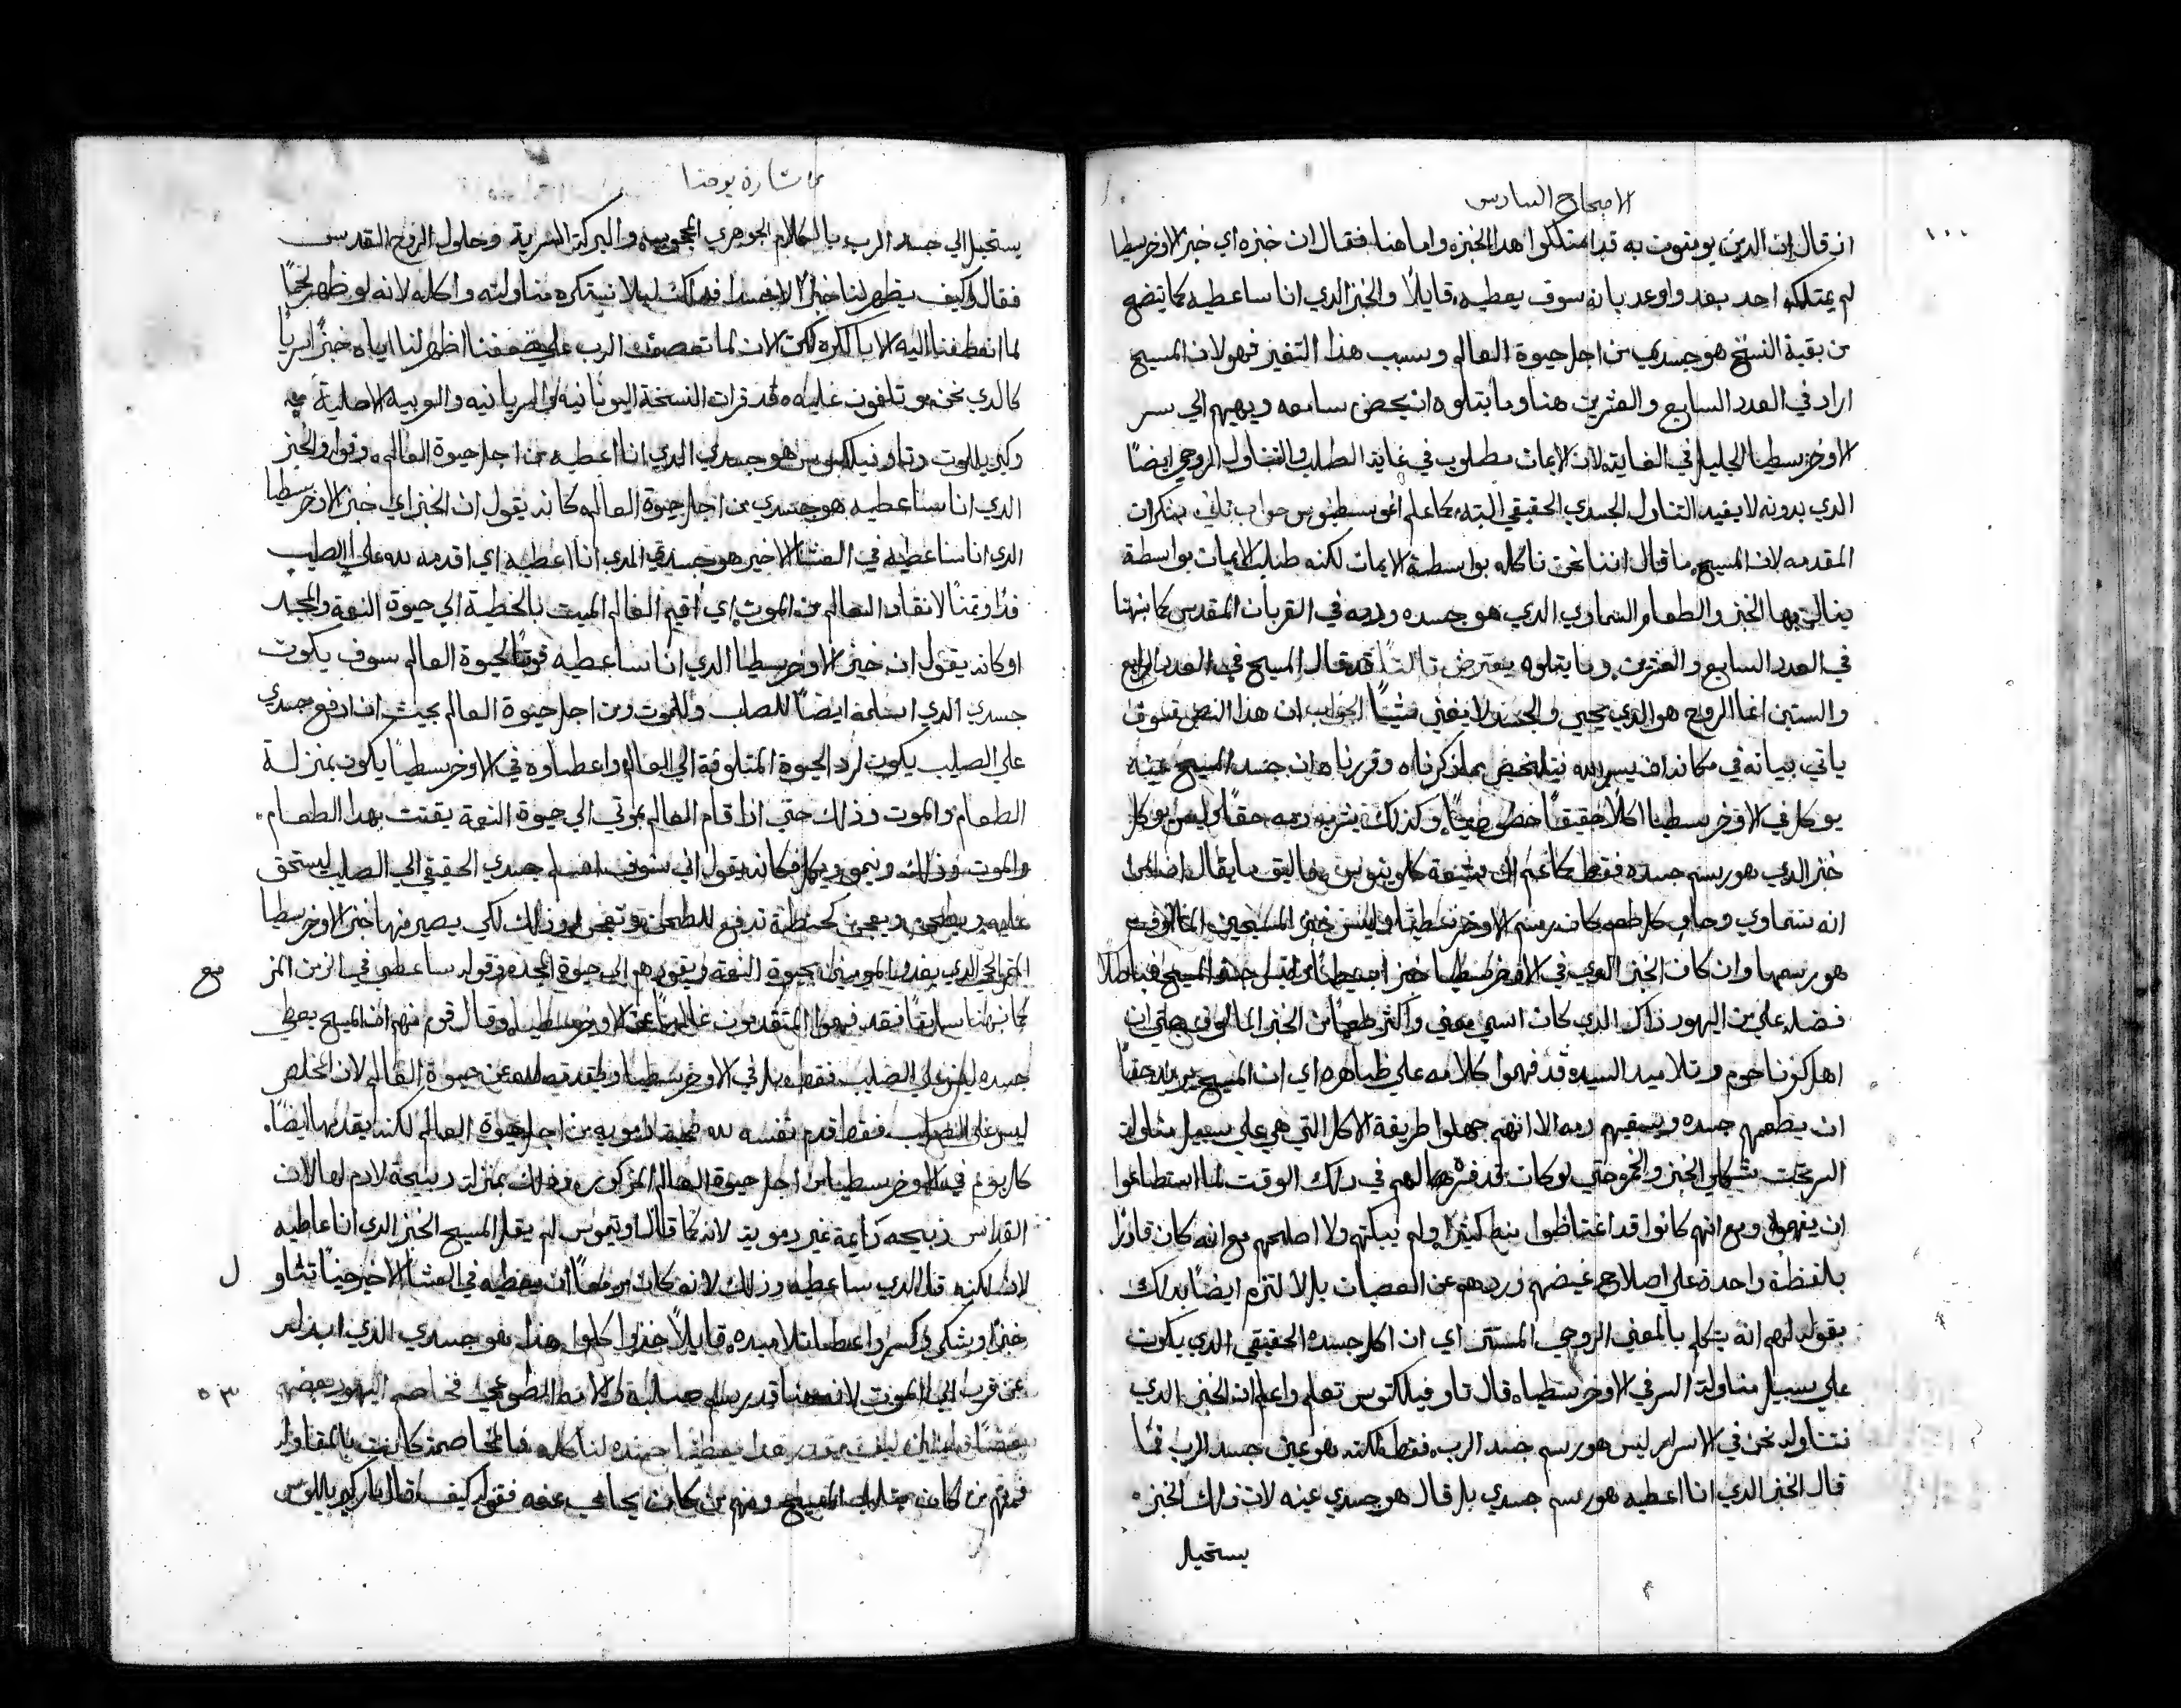 الاصحاح السادس
١٠٠
ان قال ان الدين يومنوت به قد امتلكوا هدا الخبزه واما هنا فقال ان خبزه اي خبز الاوخرسطيا
لم يمتلكه احد بعد واوعد بانه سوف يعطيه قايلاً والخبز الدي انا ساعطيه كما يتضح
من بقية النسخ هو جسدي من اجل حيوة العالم وسبب هذا التغير فهو لان المسيح
اراد في العدد السابع والعشرين هنا وما يتلوه ان يحض سامعه ويهيهم الي سر
الاوخرسطيا الجليل في الغايه لان الايمان مطلوب في غاية الطلب والتناول الروحي ايضاً
الدي بدونه لا يفيد التناول الجسدي الحقيقي البته كما علم اغوسطينوس
المقدمه لان المسيح ما قال اننا نحن ناكله بواسطة الايمان لكنه طلب الايمان بواسطة
ينال بها الخبز والطعام السماوي الدي هو جسده ودمه في القربان المقدس كما نبهنا
في العدد السابع والعشرين وما يتلوه يعترض ثالثاً قد قال المسيح في العدد الرابع
والستين انما الروح هو الدي يحيي والجسد لا يغني شيئاً الجواب ان هذا النص سوف
ياتي بيانه في مكانه ان يسر الله نيتلخص بما ذكرناه وقررناه ان جسد المسيح عينه
يوكل في الاوخرسطيا اكلاً حقيقياً وكذلك يشرب دمه حقاً وليس يوكل
خبز الدي هو رسم جسده فقط كما زعم كلوينوس
انه سماوي وحاوي كل طعم كان رسم الاوخرسطيا وليس خبز المسيحيين المالوف
هو رسمها وان كان الخبز الدي في الاوخرسطيا خبز
فضل علي من اليهود ذاك الدي كان اسمي معني واكثر طعماً من الخبز المالوف حتي ان
اهل كفرناحوم وتلاميد السيد قد فهموا كلامه علي ظاهره اي ان المسيح يريد حقاً
ان يطعمهم جسده ويسقيهم دمه الا انهم جهلوا طريقة الاكل التي هي علي سبيل مناولة
السر تحت شكلي الخبز والخمر حتي لو كان قد فسرها لهم في دلك الوقت لما استطاعوا
ان يفهموا ومع انهم كانوا قد اغتاظوا منه كثيراً ولم يبكتهم ولا اصلحهم مع انه كان قادراً
بلفظة واحدة علي اصلاح غيضهم وردهم عن العصيان بل لا لتزم ايضاً بدلك
بقوله لهم انه يتكلم بالمعني الروحي المستتر اي ان اكل جسده الحقيقي الدي يكون
علي سبيل مناولة السر في الاوخرسطياه قال تاوفيلكتوس تعلم واعلم ان الخبز الدي
نتناوله نحن في الاسرار ليس هو رسم جسد الرب فقط لكنه هو عين جسد الرب
قال الخبز الدي انا اعطيه هو رسم جسدي بل قال هو جسدي عينه لان ذلك الخبز
يستحيل
من بشارة يوحنا
يستحيل الي جسد الرب بالكلام الجوهري والبركة السرية وحلول الروح القدس
فقال وكيف يظهر لنا خبزاً لا جسداً فدلك ليلا نستكره مناولته واكله لانه لو ظهر لحماً
لما انعطفنا اليه الا بالكره لكن الان لما تعطف الرب علي ضعفنا اظهر لنا اياه خبزاً سرياً
كالدي نحن مو تلفون عليه وقد قرات النسخة اليونانيه والسريانيه والعربيه الاصلية
تاوفيلكتوس هو جسدي الدي انا اعطيه من اجل حيوة العالم وقوله والخبز
الدي انا ساعطيه هو جسدي من اجل حيوة العالم كانه يقول ان الخبز اي خبز الاوخرسطيا
الدي انا ساعطيه في العشا الاخير هو جسدي الدي انا اعطيه اي اقدمه لله علي الصليب
فداً وثمناً لانقاد العالم من الموت اي اقيم العالم الميت بالخطية الي حيوة النعمة والمجد
او كانه يقول ان خبز الاوخرسطيا الدي انا ساعطيه قوتاً لحيوة العالم سوف يكون
جسدي الدي اسلمه ايضاً للصلب وللموت من اجل حيوة العالم بحيث ان ارفع جسدي
علي الصليب يكون لرد الحيوة المتلوفة الي العالم واعطاوه في الاوخرسطيا يكون بمنزلة
الطعام والموت وذلك حتي ادا قام العالم بموتي الي حيوة النعمة يقتت بهدا الطعام
والموت وذلك وينمو ويكمل فكانه يقول اني سوف اسلم جسدي الحقيقي الي الصلب ليستحق
عليه ويطحن ويعجن كحنطة تدفع للطحن وتعجن وذلك لكي يصير منها خبز الاوخرسطيا
الدي يغدي المومنين بحيوة النعمة ويقودهم الي حيوة المجد وقوله ساعطي في الزمن
مع
كما نبهنا سابقاً فقد فهموا المتقدمون غالباً عن الاوخرسطيا وقال قوم منهم ان المسيح يعطي
جسده ليس علي الصليب فقط بل في الاوخرسطيا عن حيوة العالم لان المخلص
ليس علي الصليب فقط قدم نفسه لله ضحية دمويه من اجل حيوة العالم لكنه يقدمها ايضاً
كل يوم في الاوخرسطيا من اجل حيوة العالم المذكوره وذلك بمنزلة دبيحة لادم لها لان
القداس ذبيحه دايمة غير دمويه لانه كما قال لم يقل المسيح الخبز الدي انا عاطيه
ل
لان لكنه قال الدي ساعطيه وذلك لانه كان مزمعاً ان يعطيه في العشا الاخير حيناً تناو
خبزاً وشكر وكسر واعطا تلاميده قايلاً خذوا كلوا هذا هو جسدي الدي ابدله
٥٣
عن قريب الي الموت لانه هنا قد رسم فخاصم اليهود بعضهم
بعضاً قايلين كيف يقدر هدا يعطينا جسده لناكله فالمخاصمه كانت بالمقاوله
فمنهم من كان المسيح ومنهم من كان يحامي عنه فقوله كيف قال